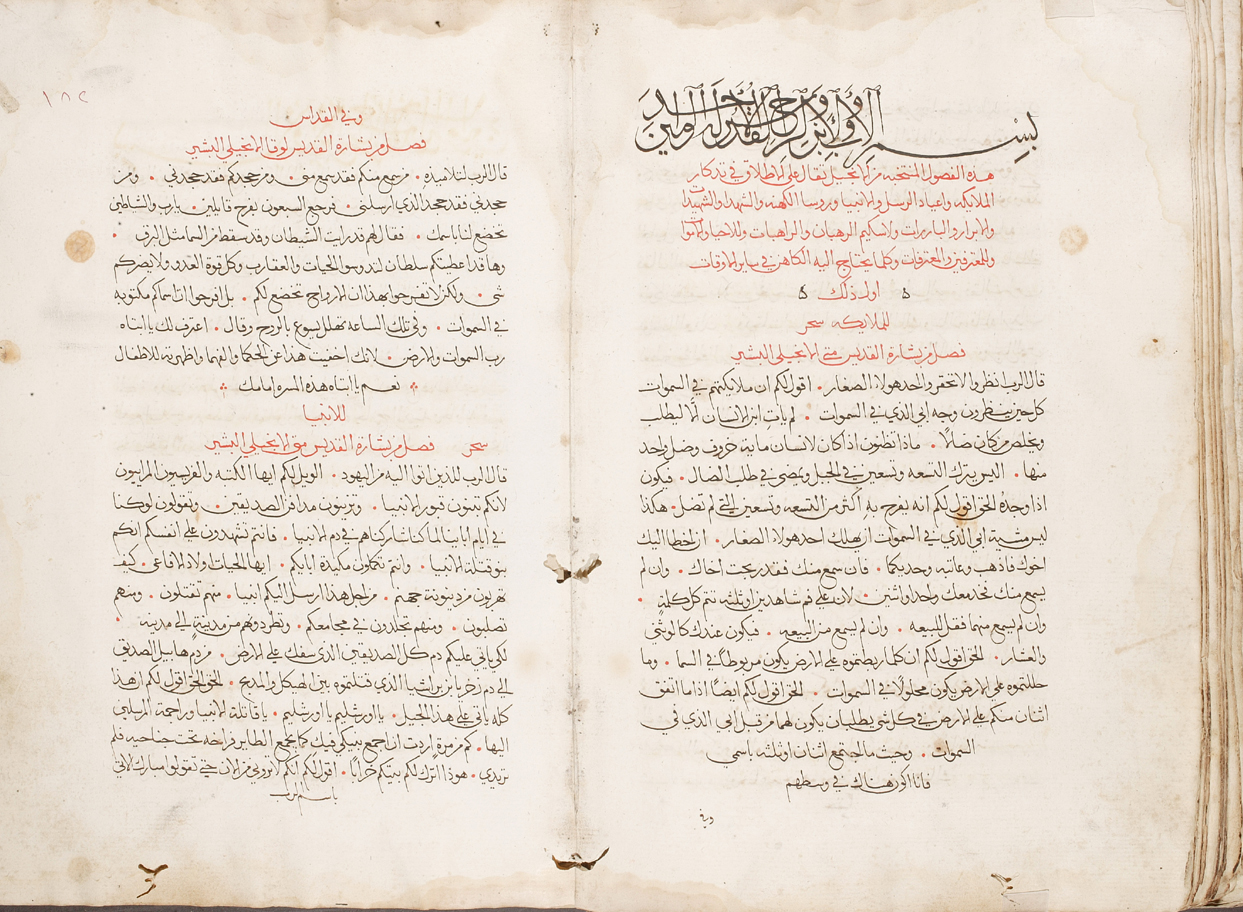 بسم الاب والابن والروح القدس الاه واحد امين
هذه الفصول المنتخبه من الانجيل تقال على الاطلاق في تذكار
الملايكه واعياد الرسل والانبيا وروسا الكهنه والشهدا والشهيدات
والابرار والبارات ولاسكيم الرهبان والراهبات وللاحيا والاموات
وللمعترفين والمعترفات وكلما يحتاج اليه الكاهن في ساير الاوقات
اول ذلك
للملايكه سحر
فصل من بشارة القديس متى الانجيلي البشير
قال الرب انظروا لا تحقروا احد هولا الصغار • اقول لكم ان ملايكتهم في السموات
كل حين ينظرون وجه ابي الذي في السموات • لم يات ابن الانسان الا ليطلب
ويخلص من كان ضالا • ماذا تظنون اذا كان لانسان ماية خروف وضل واحد
منها • اليس يترك التسعه وتسعين في الجبل ويمضي في طلب الضال • فيكون
اذا وجده الحق اقول لكم انه يفرح به اكثر من التسعه وتسعين التي لم تضل • هكذا
ليس مشية ابي الذي في السموات ان يهلك احد هولا الصغار • ان اخطا اليك
اخوك فاذهب وعاتبه وحدكما • فان سمع منك فقد ربحت اخاك • وان لم
يسمع منك فخذ معك واحد او اثنين • لان على فم شاهدين او ثلثه تتم كل كلمة •
وان لم يسمع منهما فقل للبيعه • وان لم يسمع من البيعه • فيكون عندك كالوثني
والعشار • الحق اقول لكم ان كلما ربطتموه على الارض يكون مربوطا في السما • وما
حللتموه على الارض يكون محلولا في السموات • الحق اقول لكم ايضا اذا ما اتفق
اثنان منكم على الارض في كل شي يطلبان يكون لهما من قبل ابي الذي في
السموات • وحيث ما اجتمع اثنان او ثلثه باسمي
فانا اكون هناك في وسطهم
وفي
١٨٢
وفي القداس
فصل من بشارة القديس لوقا الانجيلي البشير
قال الرب لتلاميذه • من سمع منكم فقد سمع مني • ومن جحدكم فقد جحدني • ومن
جحدني فقد جحد الذي ارسلني • فرجع السبعون بفرح قايلين • يارب والشياطين
تخضع لنا باسمك • فقال لهم قد رايت الشيطان وقد سقط من السما مثل البرق •
وها قد اعطيتكم سلطان لتدوسوا الحيات والعقارب وكل قوة العدو ولا يضركم
شي • ولكن لا تفرحوا بهذا ان الارواح تخضع لكم • بل افرحوا ان اسماكم مكتوبه
في السموات • وفي تلك الساعه تهلل يسوع بالروح وقال • اعترف لك يا ابتاه
رب السموات والارض • لانك اخفيت هذا عن الحكما والفهما واظهرته للاطفال
نعم يا ابتاه هذه المسره امامك
للانبيا
سحر فصل من بشارة القديس متى الانجيلي البشير
قال الرب للذين اتوا اليه من اليهود • الويل لكم ايها الكتبه والفريسيون المرايون
لانكم تبنون قبور الانبيا • وتزينون مدافن الصديقين • وتقولون لو كنا
في ايام ابايينا لما كنا شاركناهم في دم الانبيا • فانتم تشهدون على انفسكم انكم
بنو قتلة الانبيا • وانتم تكملون مكيدة ابايكم • ايها الحيات ولاد الافاعي • كيف
تهربون من دينونة جهنم • من اجل هذا ارسل اليكم انبيا • منهم تقتلون • ومنهم
تصلبون • ومنهم تجلدون في مجامعكم • وتطردوهم من مدينة الى مدينه •
لكي ياتي عليكم دم كل الصديقين الذي سفك على الارض • من دم هابيل الصديق
الى دم زخريا بن براشيا الذي قتلتموه بين الهيكل والمذبح • الحق الحق اقول لكم ان هذا
كله ياتي على هذا الجيل • يا اورشليم يا اورشليم • يا قاتلة الانبيا وراجمة المرسلين
اليها • كم من مرة اردت ان اجمع بنيكي فيك كما يجمع الطاير فراخه تحت جناحيه فلم
تريدي • هوذا اترك لكم بيتكم خرابا • اقول لكم انكم لا تروني من الان حتى تقولوا مبارك الاتي
باسم الرب